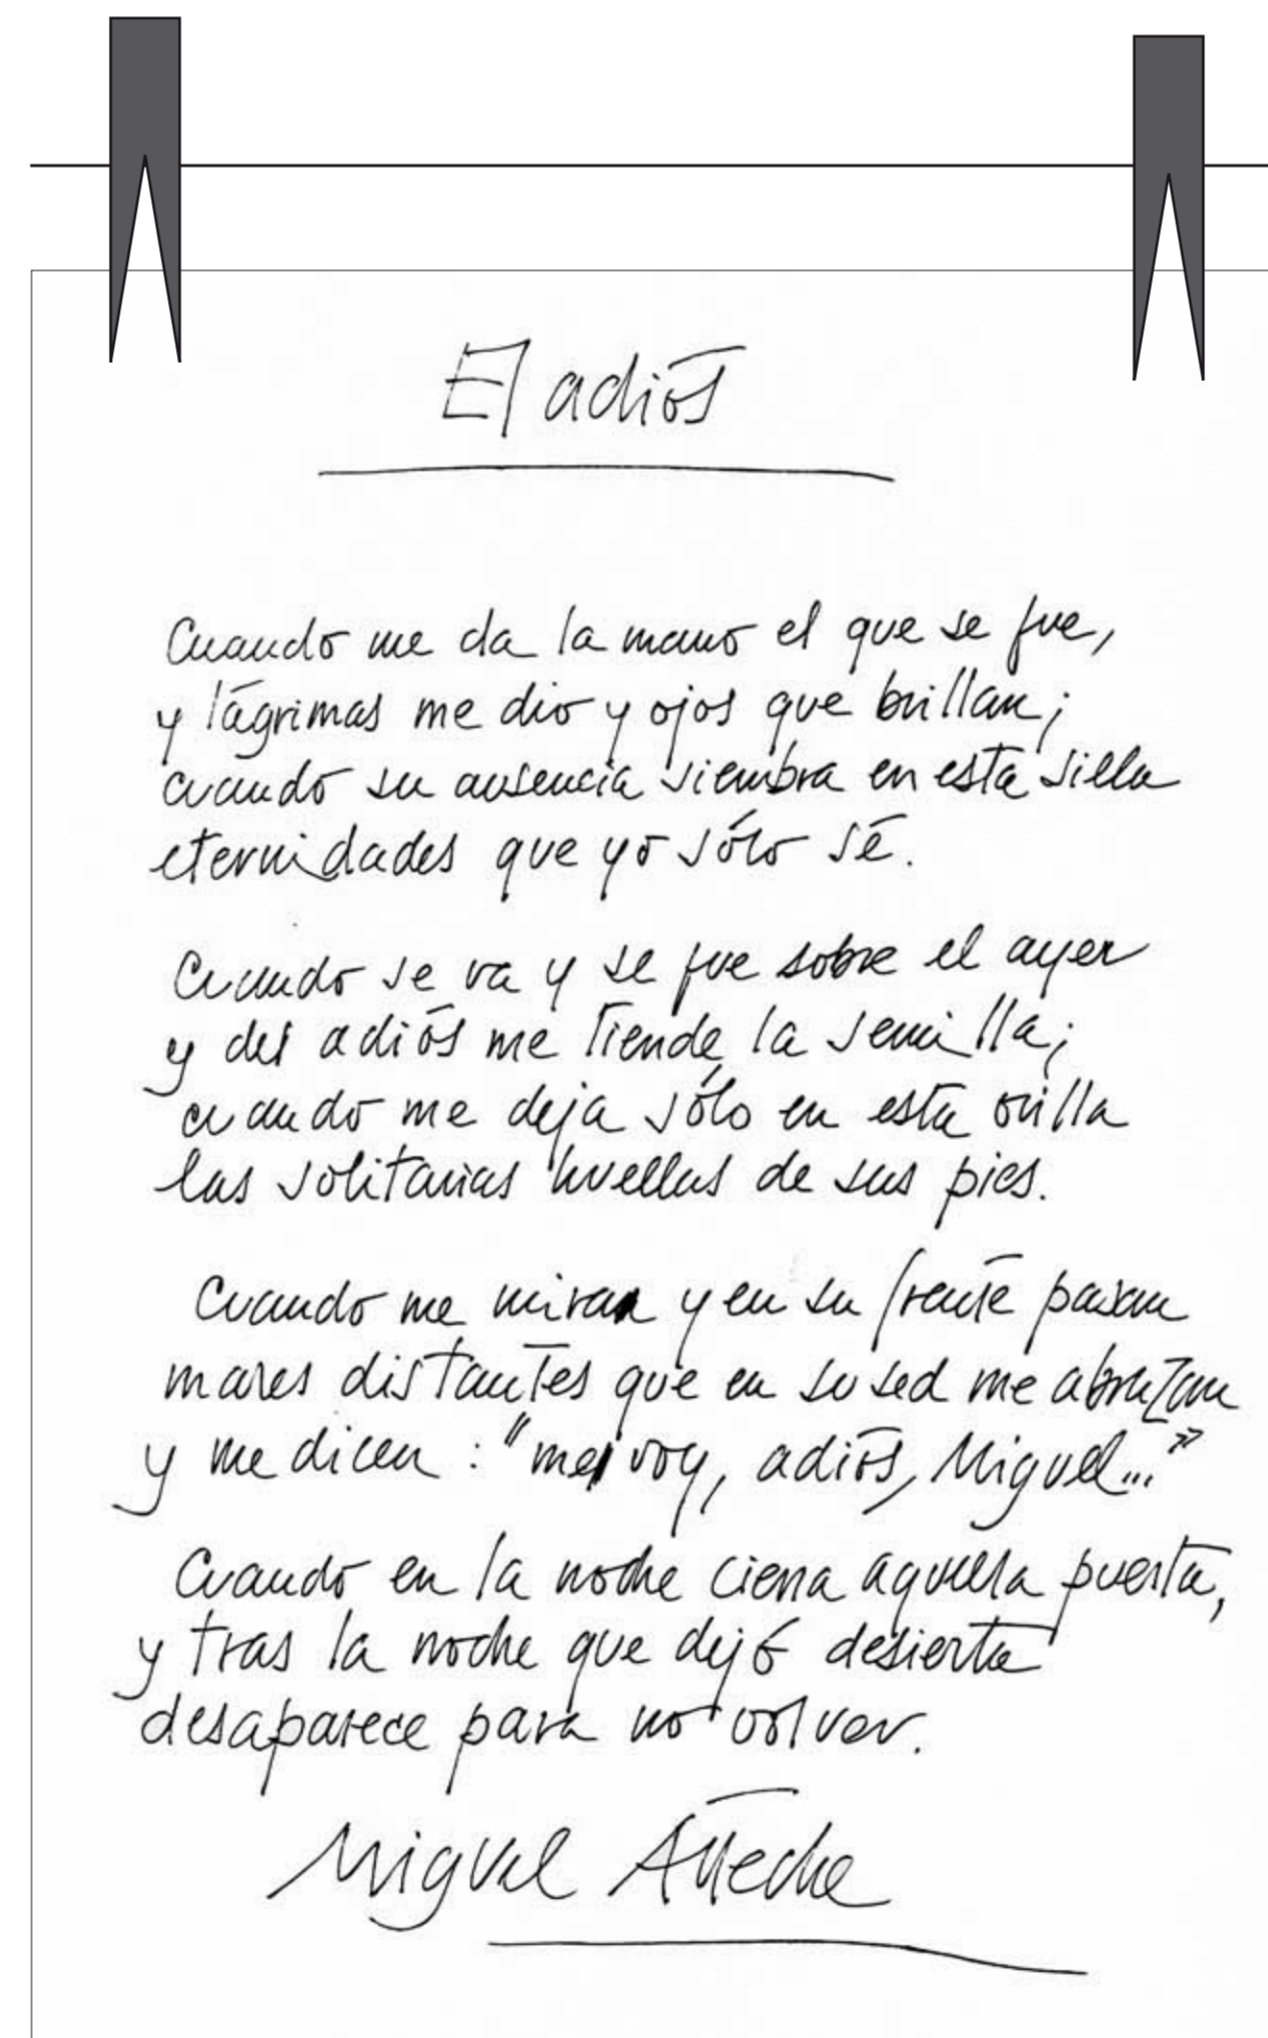 El adiós
Cuando me da la mano el que se fue,
y lágrimas me dio y ojos que brillan;
cuando su ausencia siembra en esta silla
eternidades que yo sólo sé.
Cuando se va y se fue sobre el ayer
y del adiós me tiende la semilla;
cuando me deja sólo en esta orilla
las solitarias huellas de sus pies.
Cuando me miran y en su frente pasan
mares distantes que en su sed me abrazan
y me dicen: "me voy, adiós, Miguel..."
Cuando en la noche cierra aquella puerta,
y tras la noche que dejó desierta
desaparece para no volver.
Miguel Arteche